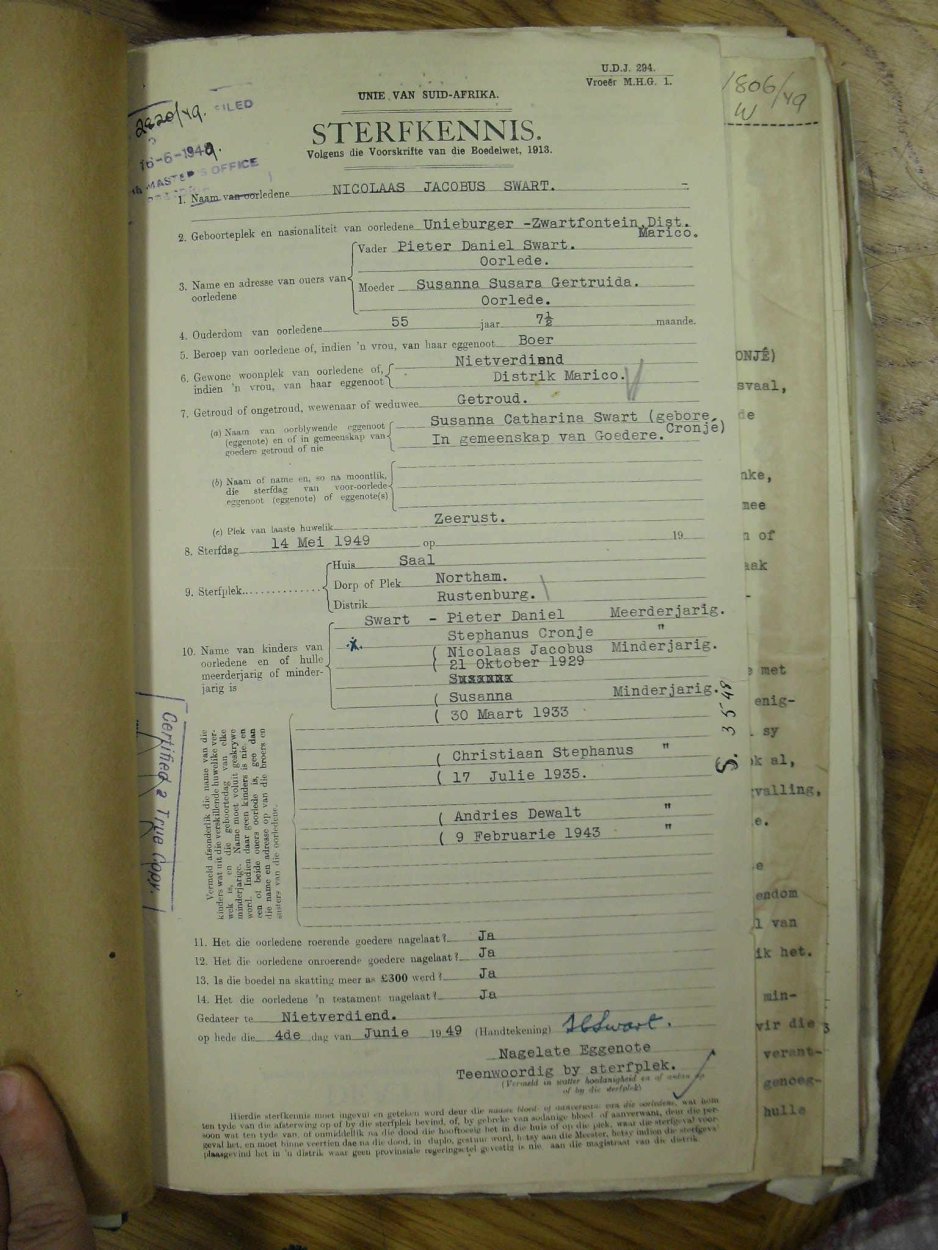 U.D.J. 294.
Vroeër M.H.G. 1.
1806/49
W
2820/49.
FILED
16-6-1949.
MASTER'S OFFICE
UNIE VAN SUID-AFRIKA.
STERFKENNIS.
Volgens die Voorskrifte van die Boedelwet, 1913.
1. Naam van oorledene NICOLAAS JACOBUS SWART.
2. Geboorteplek en nasionaliteit van oorledene Unieburger -Zwartfontein, Dist.
Marico.
3. Name en adresse van ouers van oorledene
Vader Pieter Daniel Swart.
Oorlede.
Moeder Susanna Susara Gertruida.
Oorlede.
4. Ouderdom van oorledene 55 jaar 7½ maande.
5. Beroep van oorledene of, indien 'n vrou, van haar eggenoot Boer
6. Gewone woonplek van oorledene of, Nietverdiend
indien 'n vrou, van haar eggenoot Distrik Marico.
7. Getroud of ongetroud, wewenaar of weduwee Getroud.
(a) Naam van oorblywende eggenoot Susanna Catharina Swart (gebore
(eggenote) en of in gemeenskap van In gemeenskap van Goedere. Cronje)
goedere getroud of nie
(b) Naam of name en, so na moontlik,
die sterfdag van voor-oorlede
eggenoot (eggenote) of eggenote(s)
(c) Plek van laaste huwelik Zeerust.
8. Sterfdag 14 Mei 1949 op 19
9. Sterfplek
Huis Saal
Dorp of Plek Northam.
Distrik Rustenburg.
10. Name van kinders van
oorledene en of hulle
meerderjarig of minder-
jarig is
Swart - Pieter Daniel Meerderjarig.
Stephanus Cronje "
( Nicolaas Jacobus Minderjarig.
( 21 Oktober 1929
Susanna
( Susanna Minderjarig.
( 30 Maart 1933
( Christiaan Stephanus "
( 17 Julie 1935.
( Andries Dewalt "
( 9 Februarie 1943 "
S. 3548
Certified a True Copy.
Vermeld afsonderlik die name van die
kinders wat uit die verskillende huwelike ver-
wek is, en die geboortedag van elke
minderjarige. Name moet voluit geskrywe
word. Indien daar geen kinders is nie, en
een of beide ouers oorlede is, gee dan
die name en adresse op van die broers en
susters van die oorledene.
11. Het die oorledene roerende goedere nagelaat? Ja
12. Het die oorledene onroerende goedere nagelaat? Ja
13. Is die boedel na skatting meer as £300 werd? Ja
14. Het die oorledene 'n testament nagelaat? Ja
Gedateer te Nietverdiend.
op hede die 4de dag van Junie 1949 (Handtekening) SCSwart.
Nagelate Eggenote
Teenwoordig by sterfplek.
(Vermeld in watter hoedanigheid en of anders op
of by die sterfplek)
Hierdie sterfkennis moet ingevul en geteken word deur die naaste bloed- of aanverwant van die oorledene, wat hom
ten tyde van die afsterwing op of by die sterfplek bevind, of, by gebreke van sodanige bloed- of aanverwant, deur die per-
soon wat ten tyde van of onmiddellik na die dood die hooftoesig het in die huis of op die plek, waar die sterfgeval voor-
geval het, en moet binne veertien dae na die dood, in duplo, gestuur word, hetsy aan die Meester, hetsy indien die sterfgeval
plaasgevind het in 'n distrik waar geen provinsiale regeringsetel gevestig is nie, aan die magistraat van die distrik.
ONJÉ)
svaal,
de
nke,
mee
n of
aak
e met
enig-
sy
ok al,
rvalling,
e.
e
endom
l van
ik het.
min-
vir die
verant-
genoeg-
hulle